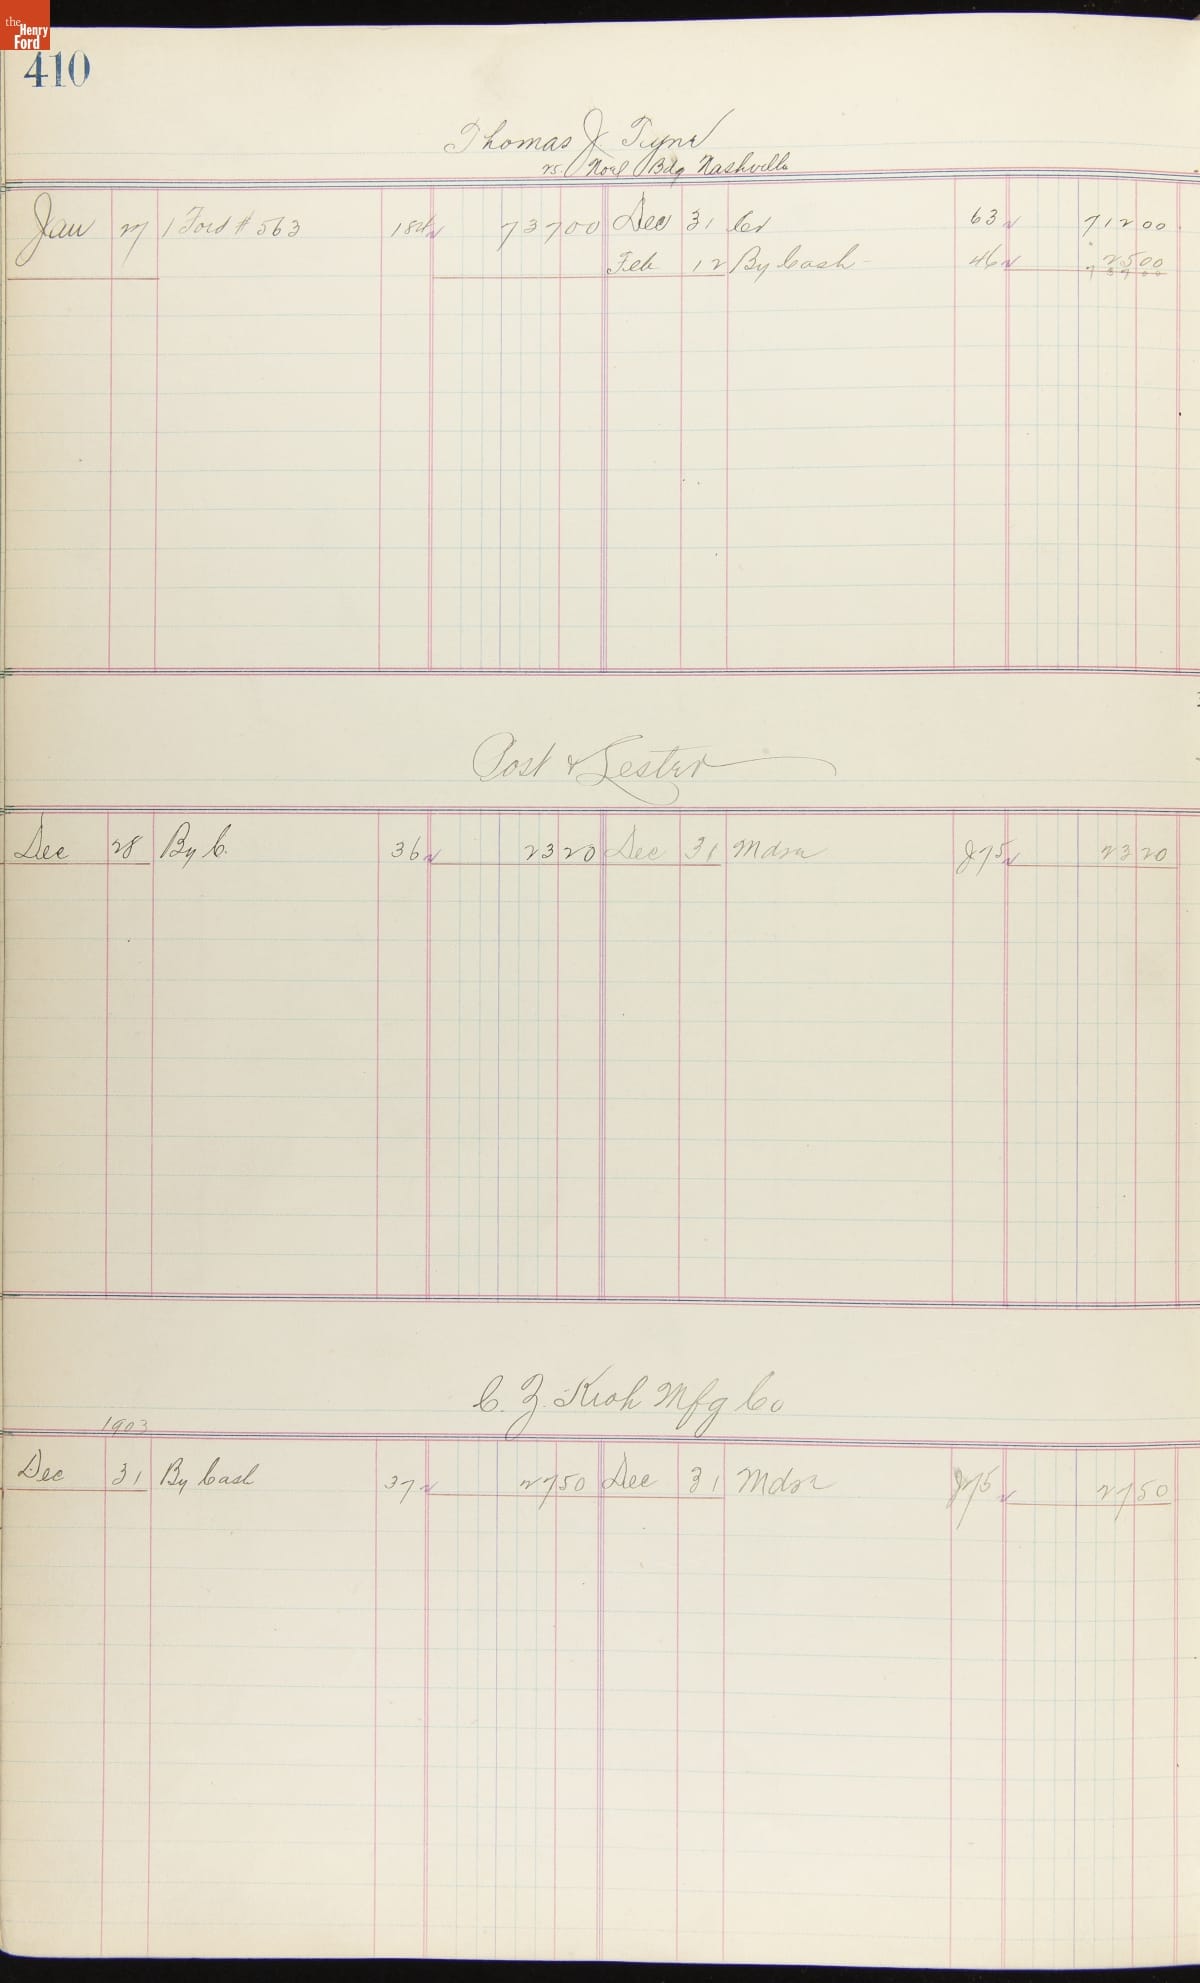 the Henry Ford
410
Thomas J Tyne
Noel Bdg Nashville
Jan 27 1 Ford # 563 737 00 Dec 31 Cr 63 712 00
Feb 12 By Cash 46 25 00
737 00
Post & Lester
Dec 28 By C. 36 23 20 Dec 31 Mdse J75 23 20
C. Z. Kroh Mfg Co
1903
Dec 31 By Cash 37 27 50 Dec 31 Mdse J75 27 50